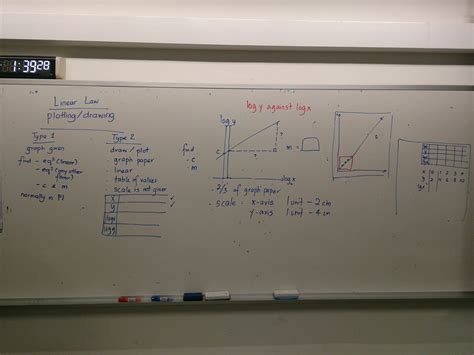 1:39 28
Linear Law
plotting/drawing
Type 1
graph given
find - eqⁿ (linear)
- eqⁿ (any other form)
- c & m
normally in P1
Type 2
draw / plot
graph paper
linear
table of values
scale is not given
x
y
logx
logy
find
- c
- m
log y against log x
log y
c
log x
m =
2/3 of graph paper
scale : x-axis 1 unit - 2 cm
y-axis 1 unit - 4 cm